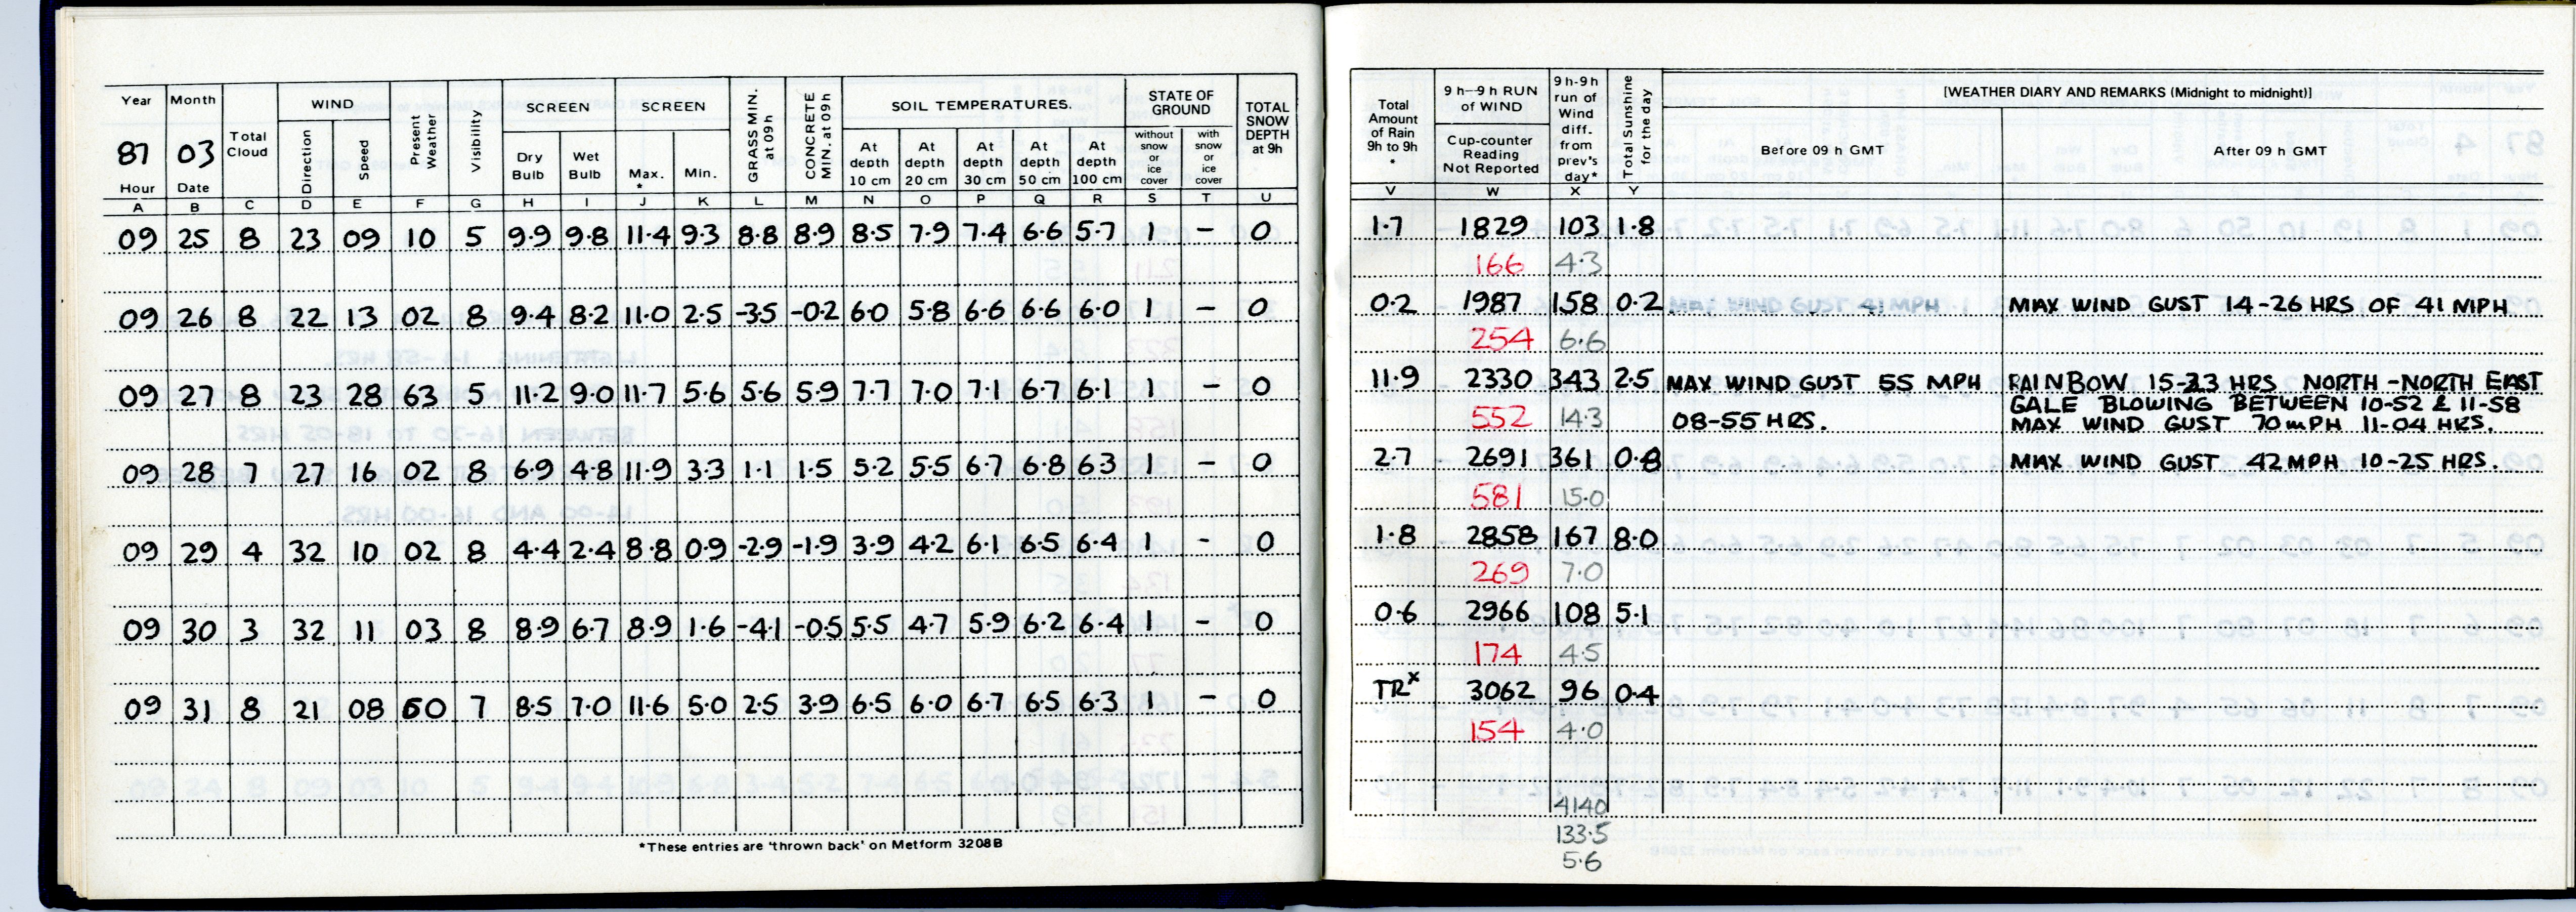 Year Month WIND SCREEN SCREEN SOIL TEMPERATURES. STATE OF GROUND TOTAL SNOW DEPTH at 9h
87 03 Total Cloud Direction Speed Present Weather Visibility Dry Bulb Wet Bulb Max. * Min. GRASS MIN. at 09 h CONCRETE MIN. at 09 h At depth 10 cm At depth 20 cm At depth 30 cm At depth 50 cm At depth 100 cm without snow or ice cover with snow or ice cover
Hour Date
A B C D E F G H I J K L M N O P Q R S T U
09 25 8 23 09 10 5 9.9 9.8 11.4 9.3 8.8 8.9 8.5 7.9 7.4 6.6 5.7 1 – 0
09 26 8 22 13 02 8 9.4 8.2 11.0 2.5 -3.5 -0.2 6.0 5.8 6.6 6.6 6.0 1 – 0
09 27 8 23 28 63 5 11.2 9.0 11.7 5.6 5.6 5.9 7.7 7.0 7.1 6.7 6.1 1 – 0
09 28 7 27 16 02 8 6.9 4.8 11.9 3.3 1.1 1.5 5.2 5.5 6.7 6.8 6.3 1 – 0
09 29 4 32 10 02 8 4.4 2.4 8.8 0.9 -2.9 -1.9 3.9 4.2 6.1 6.5 6.4 1 – 0
09 30 3 32 11 03 8 8.9 6.7 8.9 1.6 -4.1 -0.5 5.5 4.7 5.9 6.2 6.4 1 – 0
09 31 8 21 08 60 7 8.5 7.0 11.6 5.0 2.5 3.9 6.5 6.0 6.7 6.5 6.3 1 – 0
*These entries are 'thrown back' on Metform 3208B
Total Amount of Rain 9h to 9h * 9 h–9 h RUN of WIND 9 h-9 h run of Wind diff. from prev's day* Total Sunshine for the day [WEATHER DIARY AND REMARKS (Midnight to midnight)]
Cup-counter Reading Not Reported Before 09 h GMT After 09 h GMT
V W X Y
1.7 1829 103 1.8
166 4.3
0.2 1987 158 0.2 MAX WIND GUST 41 MPH MAX WIND GUST 14-26 HRS OF 41 MPH
254 6.6
11.9 2330 343 2.5 MAX WIND GUST 55 MPH RAINBOW 15-23 HRS NORTH-NORTH EAST
GALE BLOWING BETWEEN 10-52 & 11-58
552 14.3 08-55 HRS. MAX WIND GUST 70 mPH 11-04 HRS.
2.7 2691 361 0.8 MAX WIND GUST 42 MPH 10-25 HRS.
581 15.0
1.8 2858 167 8.0
269 7.0
0.6 2966 108 5.1
174 4.5
TRx 3062 96 0.4
154 4.0
4140
133.5
5.6